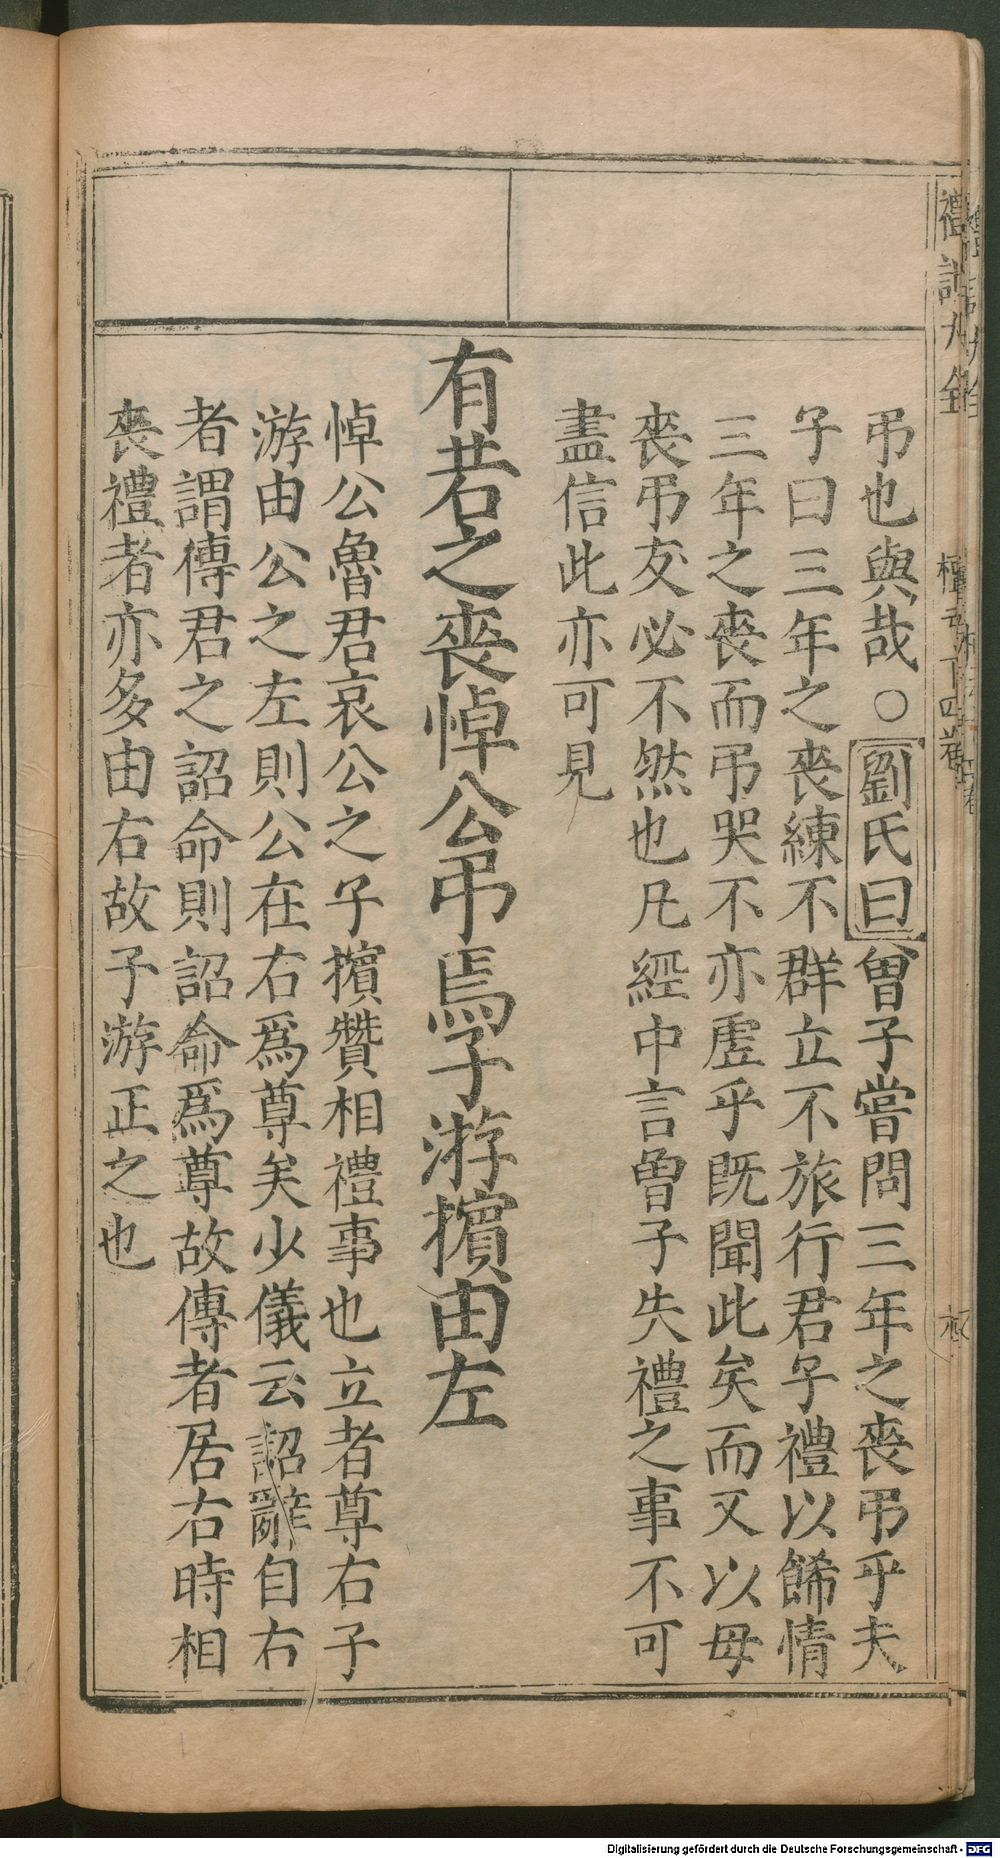 弔也與哉○劉氏曰曾子嘗問三年之喪弔乎夫
子曰三年之喪練不群立不旅行君子禮以餙情
三年之喪而弔哭不亦虗乎既聞此矣而又以母
喪弔友必不然也凡經中言曾子失禮之事不可
盡信此亦可見
有若之喪悼公弔焉子游擯由左
悼公魯君哀公之子擯贊相禮事也立者尊右子
游由公之左則公在右爲尊矣少儀云詔辭自右
者謂傳君之詔命則詔命爲尊故傳者居右時相
喪禮者亦多由右故子游正之也
禮記大全
檀弓下四卷
Digitalisierung gefördert durch die Deutsche Forschungsgemeinschaft - DFG